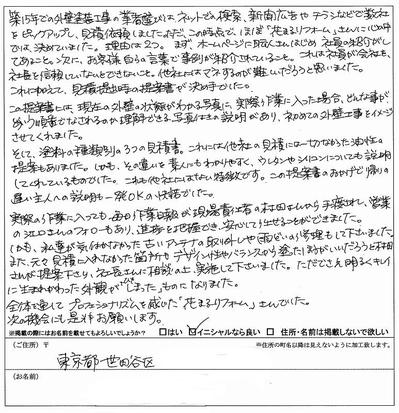 築15年での外壁塗装工事の業者選びは、ネットでの検索、新聞広告やチラシなどで数社
をピックアップし、見積依頼しました。ただ、この時点で、ほぼ「花まるリフォーム」さんに心の中
では、決めていました。理由は2つ。まず、ホームページに阪くんさんはじめ社員の紹介がし
てあること。次に、お客様自らの言葉で事例が紹介されていること。これは社長が会社を、
社員を信頼していないとできないこと。他社にはマネするのが難しいだろうと思いました。
これに加えて、見積提出時の提案書が決め手でした。
この提案書には、現在の外壁の状態がわかる写真に、実際の作業に入った場合、どんな事が、
どういう順番でなされるのか理解できる、写真付きの説明があり、初めての外壁工事をイメージ
させてくれました。
そして、塗料の種類別の3つの見積書。これには他社の見積には一切なかった油性の
提案もありました。しかも、その違いを素人にもわかりやすく、ウレタンやシリコンについても説明
してくれているものでした。これも他社にはない特徴です。この提案書のおかげで帰りの
遅い主人への説明も一発OKの状態でした。
実際の作業に入っても、毎の作業日報が現場責任者の村田さんから手渡され、営業
の江口さんのフォローもあり、進捗を把握でき、安心してお任せることができました。
しかも、私達が気付かなかった古いアンテナの取り外しや雨どいの修理もして下さいました。
また、元々見積に入れなかった箇所もデザイン(仕上がりバランスから塗ったほうがいいだろうと村田
さんが提案下さり、社長さんに相談の上、実施して下さいました。ただでさえ明るくキレイ
に生まれかわった外観が「しまった」ものになりました。
全体を通してプロフェッショナリズムを感じた「花まるリフォーム」さんでした。
次の機会にも是非お願いします。
※掲載の際にはお名前を載せてもよろしいでしょうか? □はい ☑イニシャルなら良い □住所・名前は掲載しないで欲しい
(ご住所) 〒 ※住所の町名以降は見えないように加工致します。
東京都世田谷区
(お名前)